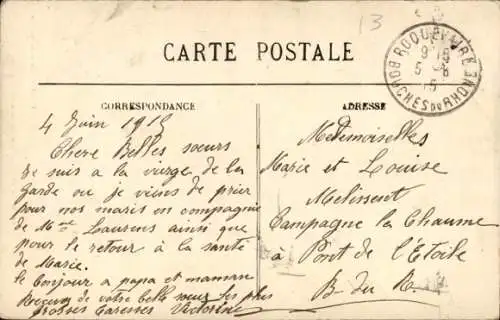 13
CARTE POSTALE
ROQUEVAIRE
9 15
5 - 6
15
BOUCHES DU RHONE
CORRESPONDANCE
ADRESSE
4 Juin 1915
Chere Belles sœurs
Je suis a la vierge de la
Garde ou je viens de prier
pour nos maris en compagnie
de Mme Laurens ainsi que
pour le retour à la santé
de Marie.
le Bonjour a papa et maman
Recevez de votre belle sœur les plus
grosses Caresses Victorine
Mademoiselles
Marie et Louise
Melissent
Campagne la Chaume
à Pont de l'Etoile
B. du R.